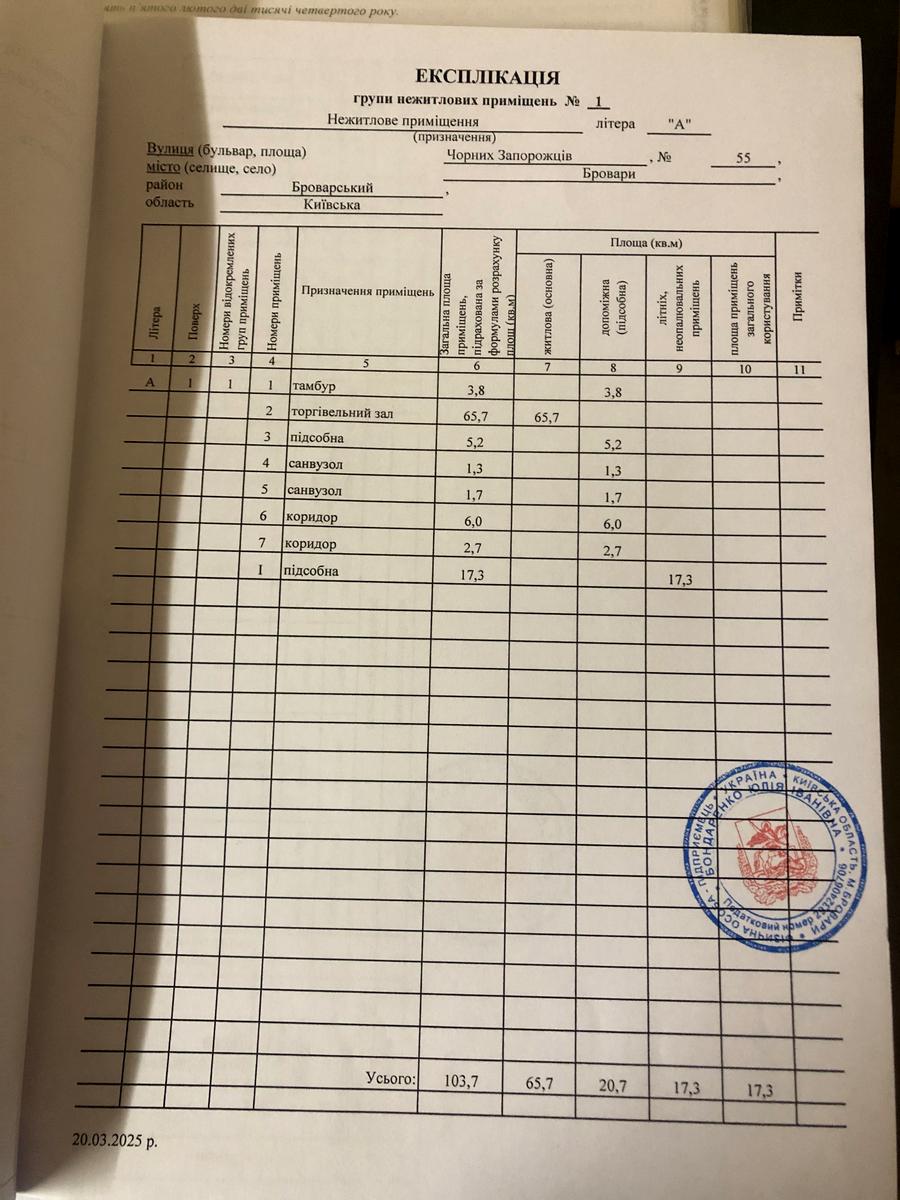 ять п'ятого лютого дві тисячі четвертого року.
ЕКСПЛІКАЦІЯ
групи нежитлових приміщень № 1
Нежитлове приміщення літера "А"
(призначення)
Вулиця (бульвар, площа) Чорних Запорожців , № 55 ,
місто (селище, село) Бровари ,
район Броварський ,
область Київська
Літера Поверх Номери відокремлених груп приміщень Номери приміщень Призначення приміщень Загальна площа приміщень, підрахована за формулами розрахунку площ (кв.м) Площа (кв.м) житлова (основна) допоміжна (підсобна) літніх, неопалювальних приміщень площа приміщень загального користування Примітки
1 2 3 4 5 6 7 8 9 10 11
А 1 1 1 тамбур 3,8 3,8
2 торгівельний зал 65,7 65,7
3 підсобна 5,2 5,2
4 санвузол 1,3 1,3
5 санвузол 1,7 1,7
6 коридор 6,0 6,0
7 коридор 2,7 2,7
I підсобна 17,3 17,3
УКРАЇНА * КИЇВСЬКА ОБЛАСТЬ, М.БРОВАРИ * ФІЗИЧНА ОСОБА - ПІДПРИЄМЕЦЬ *
БОНДАРЕНКО ЮЛІЯ ІВАНІВНА
* Податковий номер 2932406706 *
Усього: 103,7 65,7 20,7 17,3 17,3
20.03.2025 р.